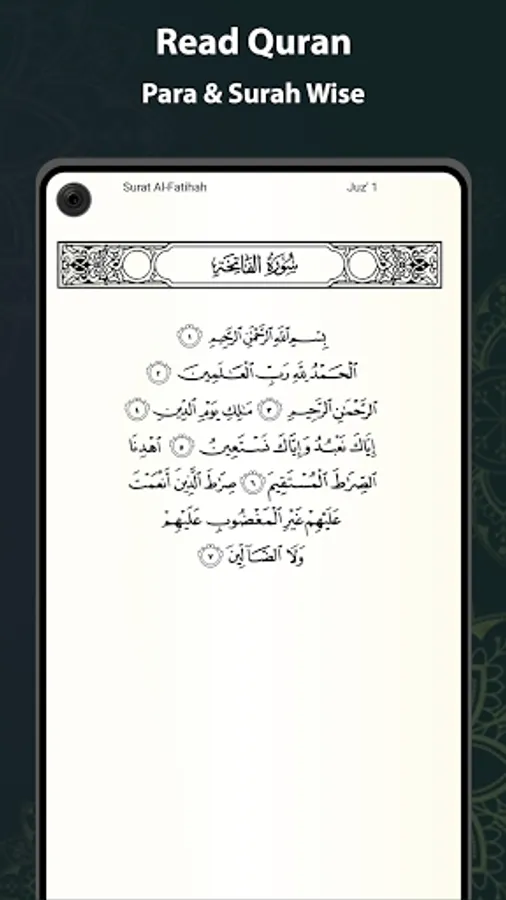 Read Quran
Para & Surah Wise
Surat Al-Fatihah Juz' 1
سُورَةُ الفَاتِحَةِ
بِسْمِ ٱللَّهِ ٱلرَّحْمَٰنِ ٱلرَّحِيمِ ١
ٱلْحَمْدُ لِلَّهِ رَبِّ ٱلْعَٰلَمِينَ ٢
ٱلرَّحْمَٰنِ ٱلرَّحِيمِ ٣ مَٰلِكِ يَوْمِ ٱلدِّينِ ٤
إِيَّاكَ نَعْبُدُ وَإِيَّاكَ نَسْتَعِينُ ٥ ٱهْدِنَا
ٱلصِّرَٰطَ ٱلْمُسْتَقِيمَ ٦ صِرَٰطَ ٱلَّذِينَ أَنْعَمْتَ
عَلَيْهِمْ غَيْرِ ٱلْمَغْضُوبِ عَلَيْهِمْ
وَلَا ٱلضَّآلِّينَ ٧